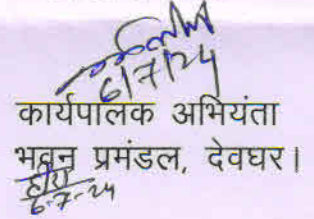 6/7/24
कार्यपालक अभियंता
भवन प्रमंडल, देवघर।
6-7-24